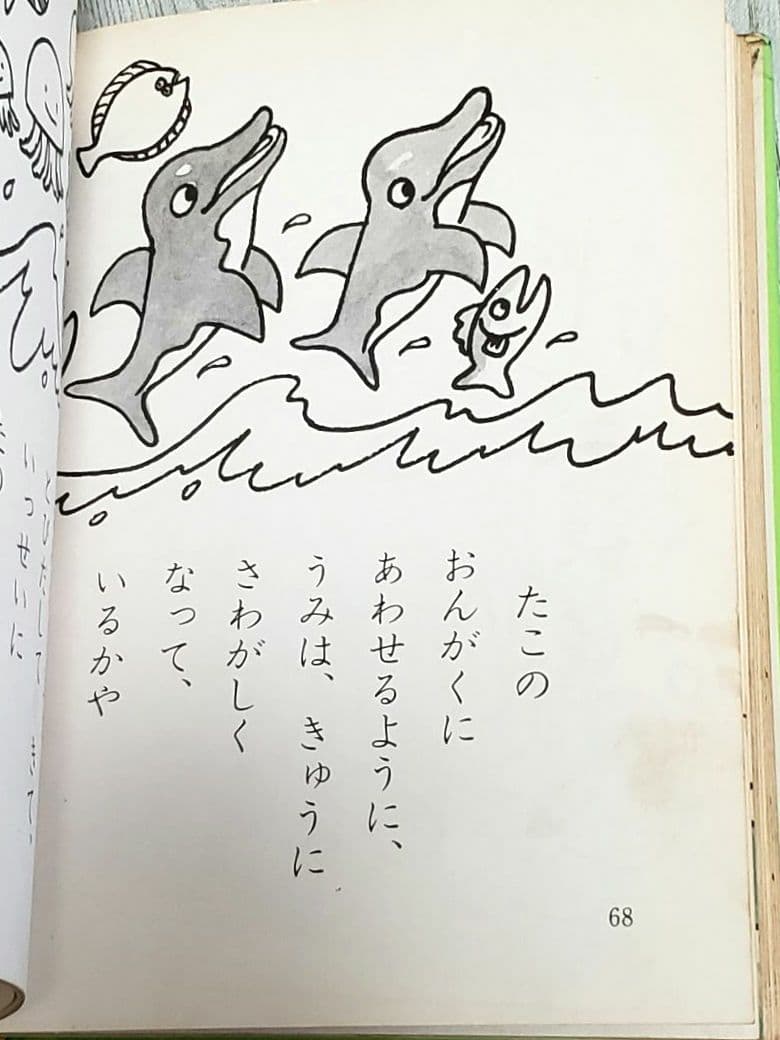 たこの
おんがくに
あわせるように、
うみは、きゅうに
さわがしく
なって、
いるかや
68
とびだして、きて、
いっせいに